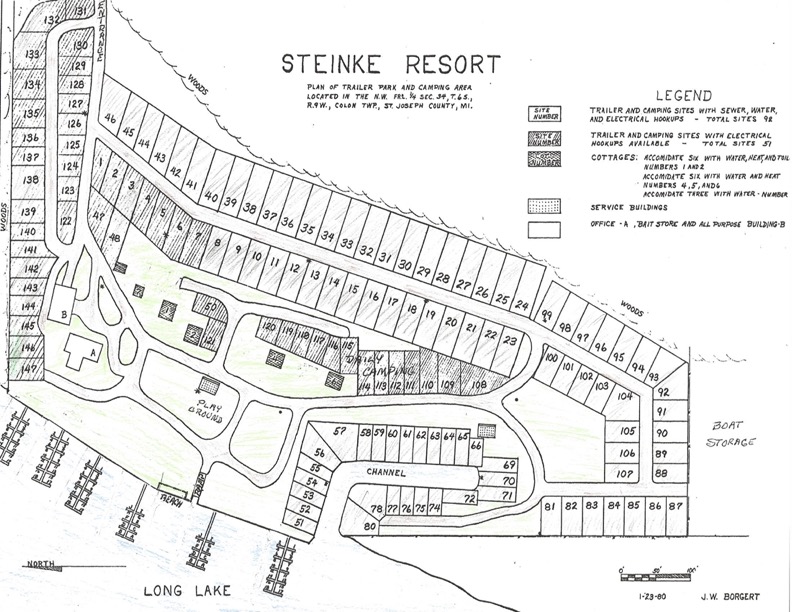 STEINKE RESORT
PLAN OF TRAILER PARK AND CAMPING AREA
LOCATED IN THE N.W. FRL. ¼ SEC. 34, T.6S.,
R.9W., COLON TWP., ST. JOSEPH COUNTY, MI.
LEGEND
SITE NUMBER
TRAILER AND CAMPING SITES WITH SEWER, WATER,
AND ELECTRICAL HOOKUPS - TOTAL SITES 92
SITE NUMBER
TRAILER AND CAMPING SITES WITH ELECTRICAL
HOOKUPS AVAILABLE - TOTAL SITES 51
COTTAGES: ACCOMIDATE SIX WITH WATER, HEAT, AND TOIL
NUMBERS 1 AND 2
ACCOMIDATE SIX WITH WATER AND HEAT
NUMBERS 4, 5, AND 6
ACCOMIDATE THREE WITH WATER - NUMBER
SERVICE BUILDINGS
OFFICE - A, BAIT STORE AND ALL PURPOSE BUILDING - B
ENTRANCE
WOODS
WOODS
WOODS
132 131
133 130
129
134 128
135 127
126
136 125
137
138 124
123
139 122
140
141
142
143
144
145
146
147
46 45 44 43 42 41 40 39 38 37 36 35 34 33 32 31 30 29 28 27 26 25 24
1 2 3 4 5 6 7 8 9 10 11 12 13 14 15 16 17 18 19 20 21 22 23
47 48
50
121
120 119 118 117 116 115
DAILY
CAMPING
114 113 112 111 110 109 108
99 98 97 96 95 94 93
100 101 102 103 104
92
91
90
89
88
105
106
107
BOAT
STORAGE
B
A
PLAY
GROUND
57 58 59 60 61 62 63 64 65 66
56
55
54
53
52
51
CHANNEL
69
70
71
72
78 77 76 75 74
80
81 82 83 84 85 86 87
BEACH
NORTH
LONG LAKE
0' 50' 100'
1-23-80 J.W. BORGERT